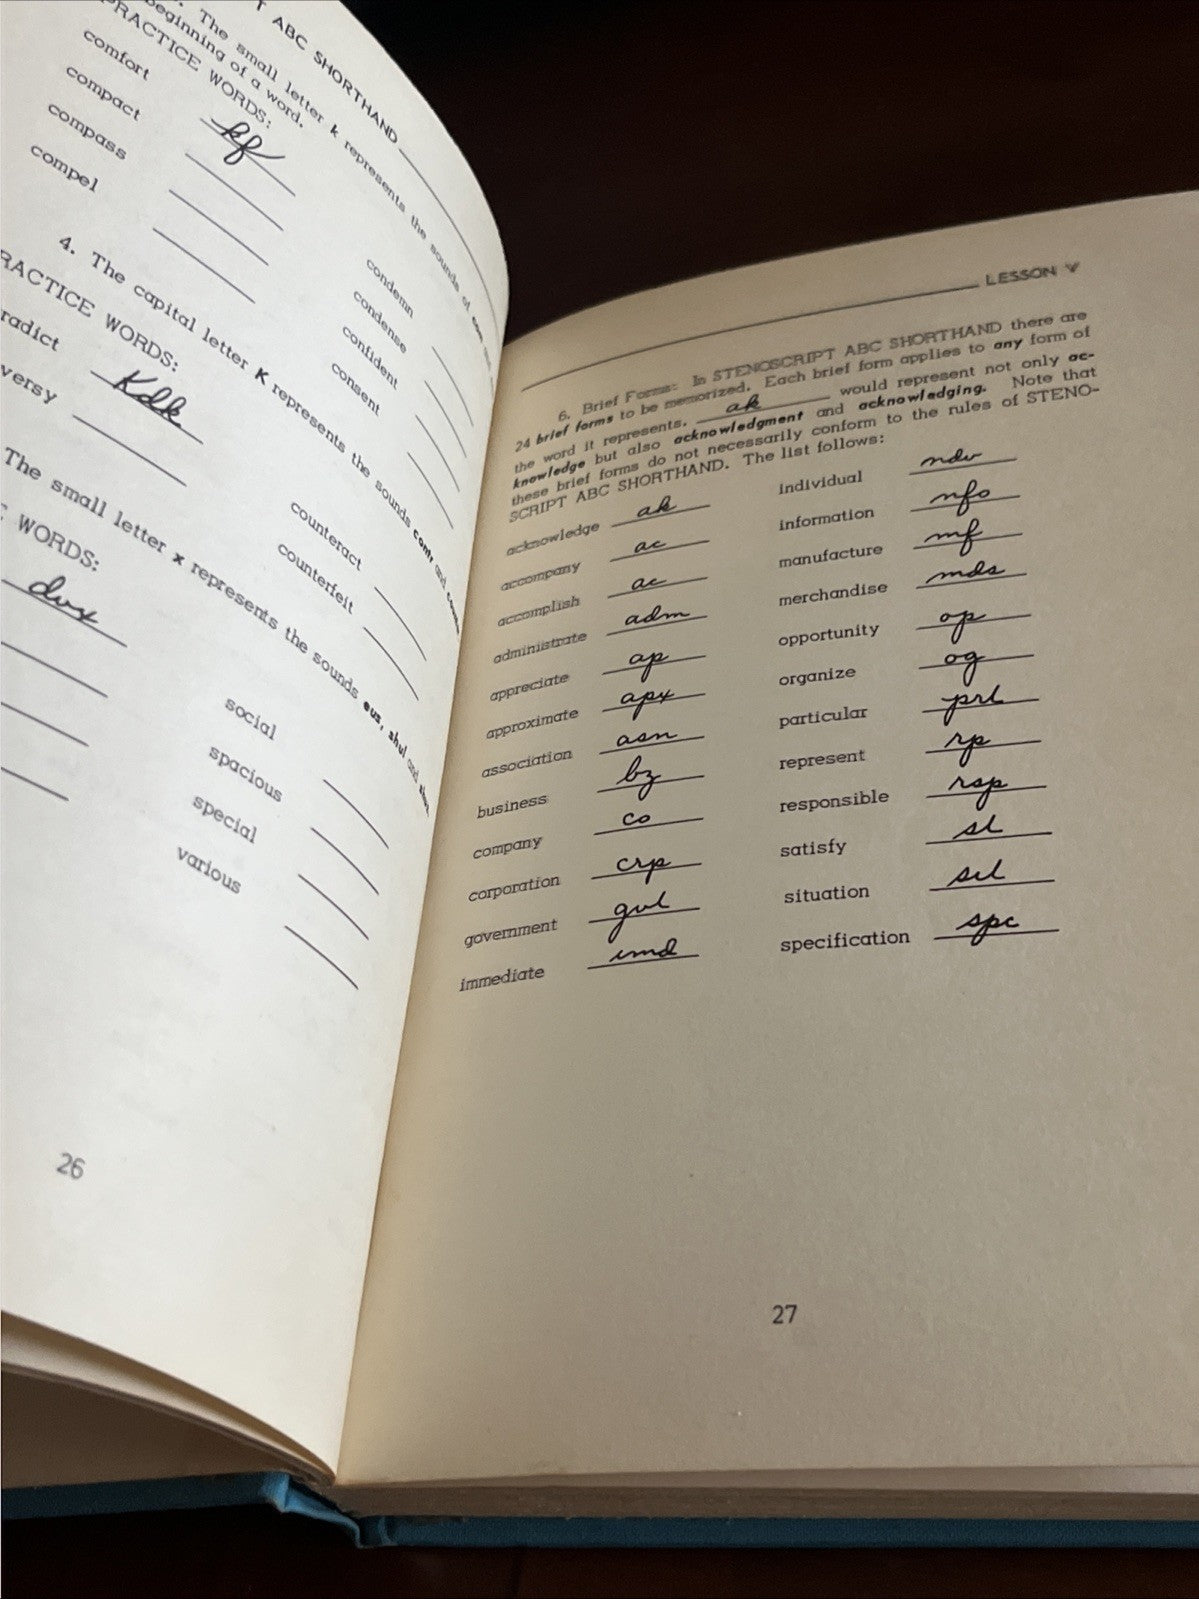 T ABC SHORTHAND
. The small letter k represents the sounds of con
beginning of a word.
PRACTICE WORDS:
comfort kf condemn
compact condense
compass confident
compel consent
4. The capital letter K represents the sounds contr and
RACTICE WORDS:
radict Kdk counteract
versy counterfeit
The small letter x represents the sounds eus, shul and
E WORDS:
dvx social
spacious
special
various
26
LESSON V
6. Brief Forms: In STENOSCRIPT ABC SHORTHAND there are
24 brief forms to be memorized. Each brief form applies to any form of
the word it represents. ak would represent not only ac-
knowledge but also acknowledgment and acknowledging. Note that
these brief forms do not necessarily conform to the rules of STENO-
SCRIPT ABC SHORTHAND. The list follows:
acknowledge ak individual ndv
accompany ac information nfo
accomplish ac manufacture mf
administrate adm merchandise mds
appreciate ap opportunity op
approximate apx organize og
association asn particular prl
business bz represent rp
company co responsible rsp
corporation crp satisfy sl
government gvl situation sil
immediate imd specification spc
27